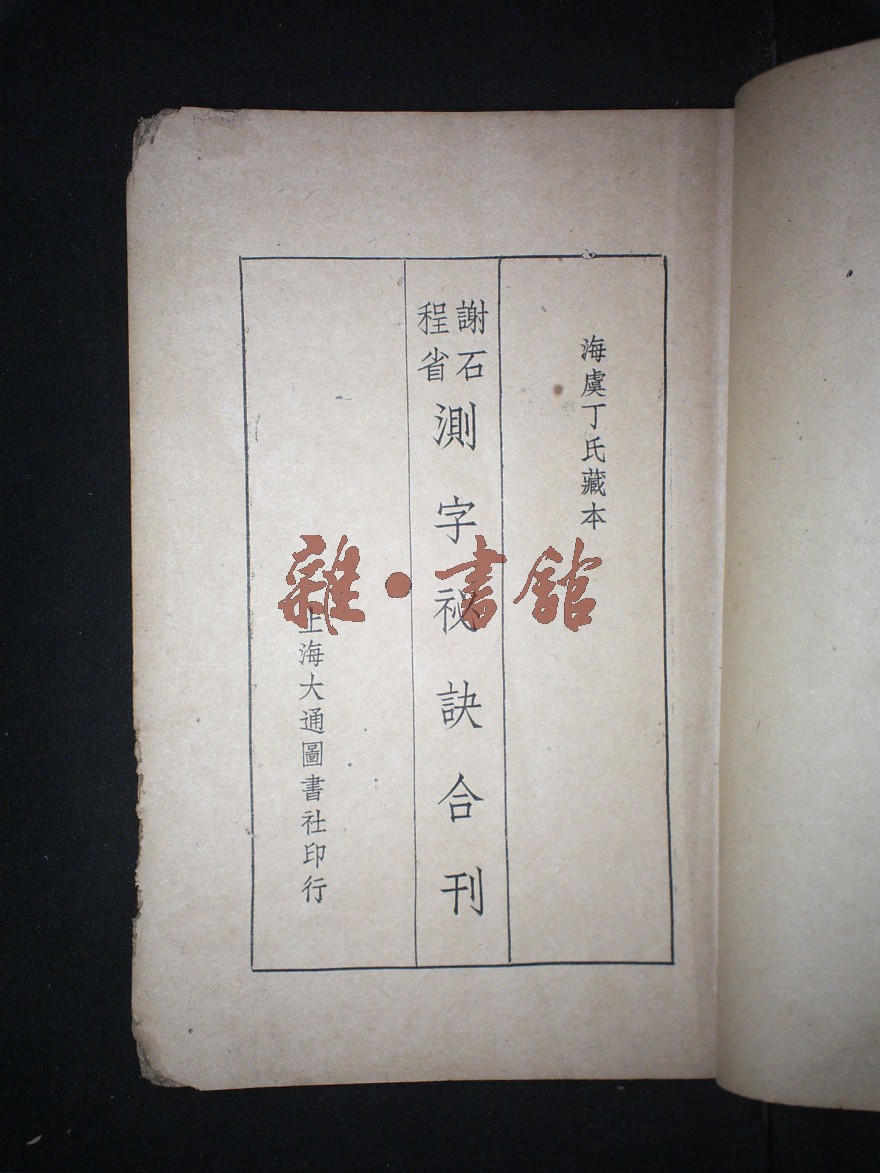 海虞丁氏藏本
謝石
程省
測字祕訣合刊
上海大通圖書社印行
雜·書館